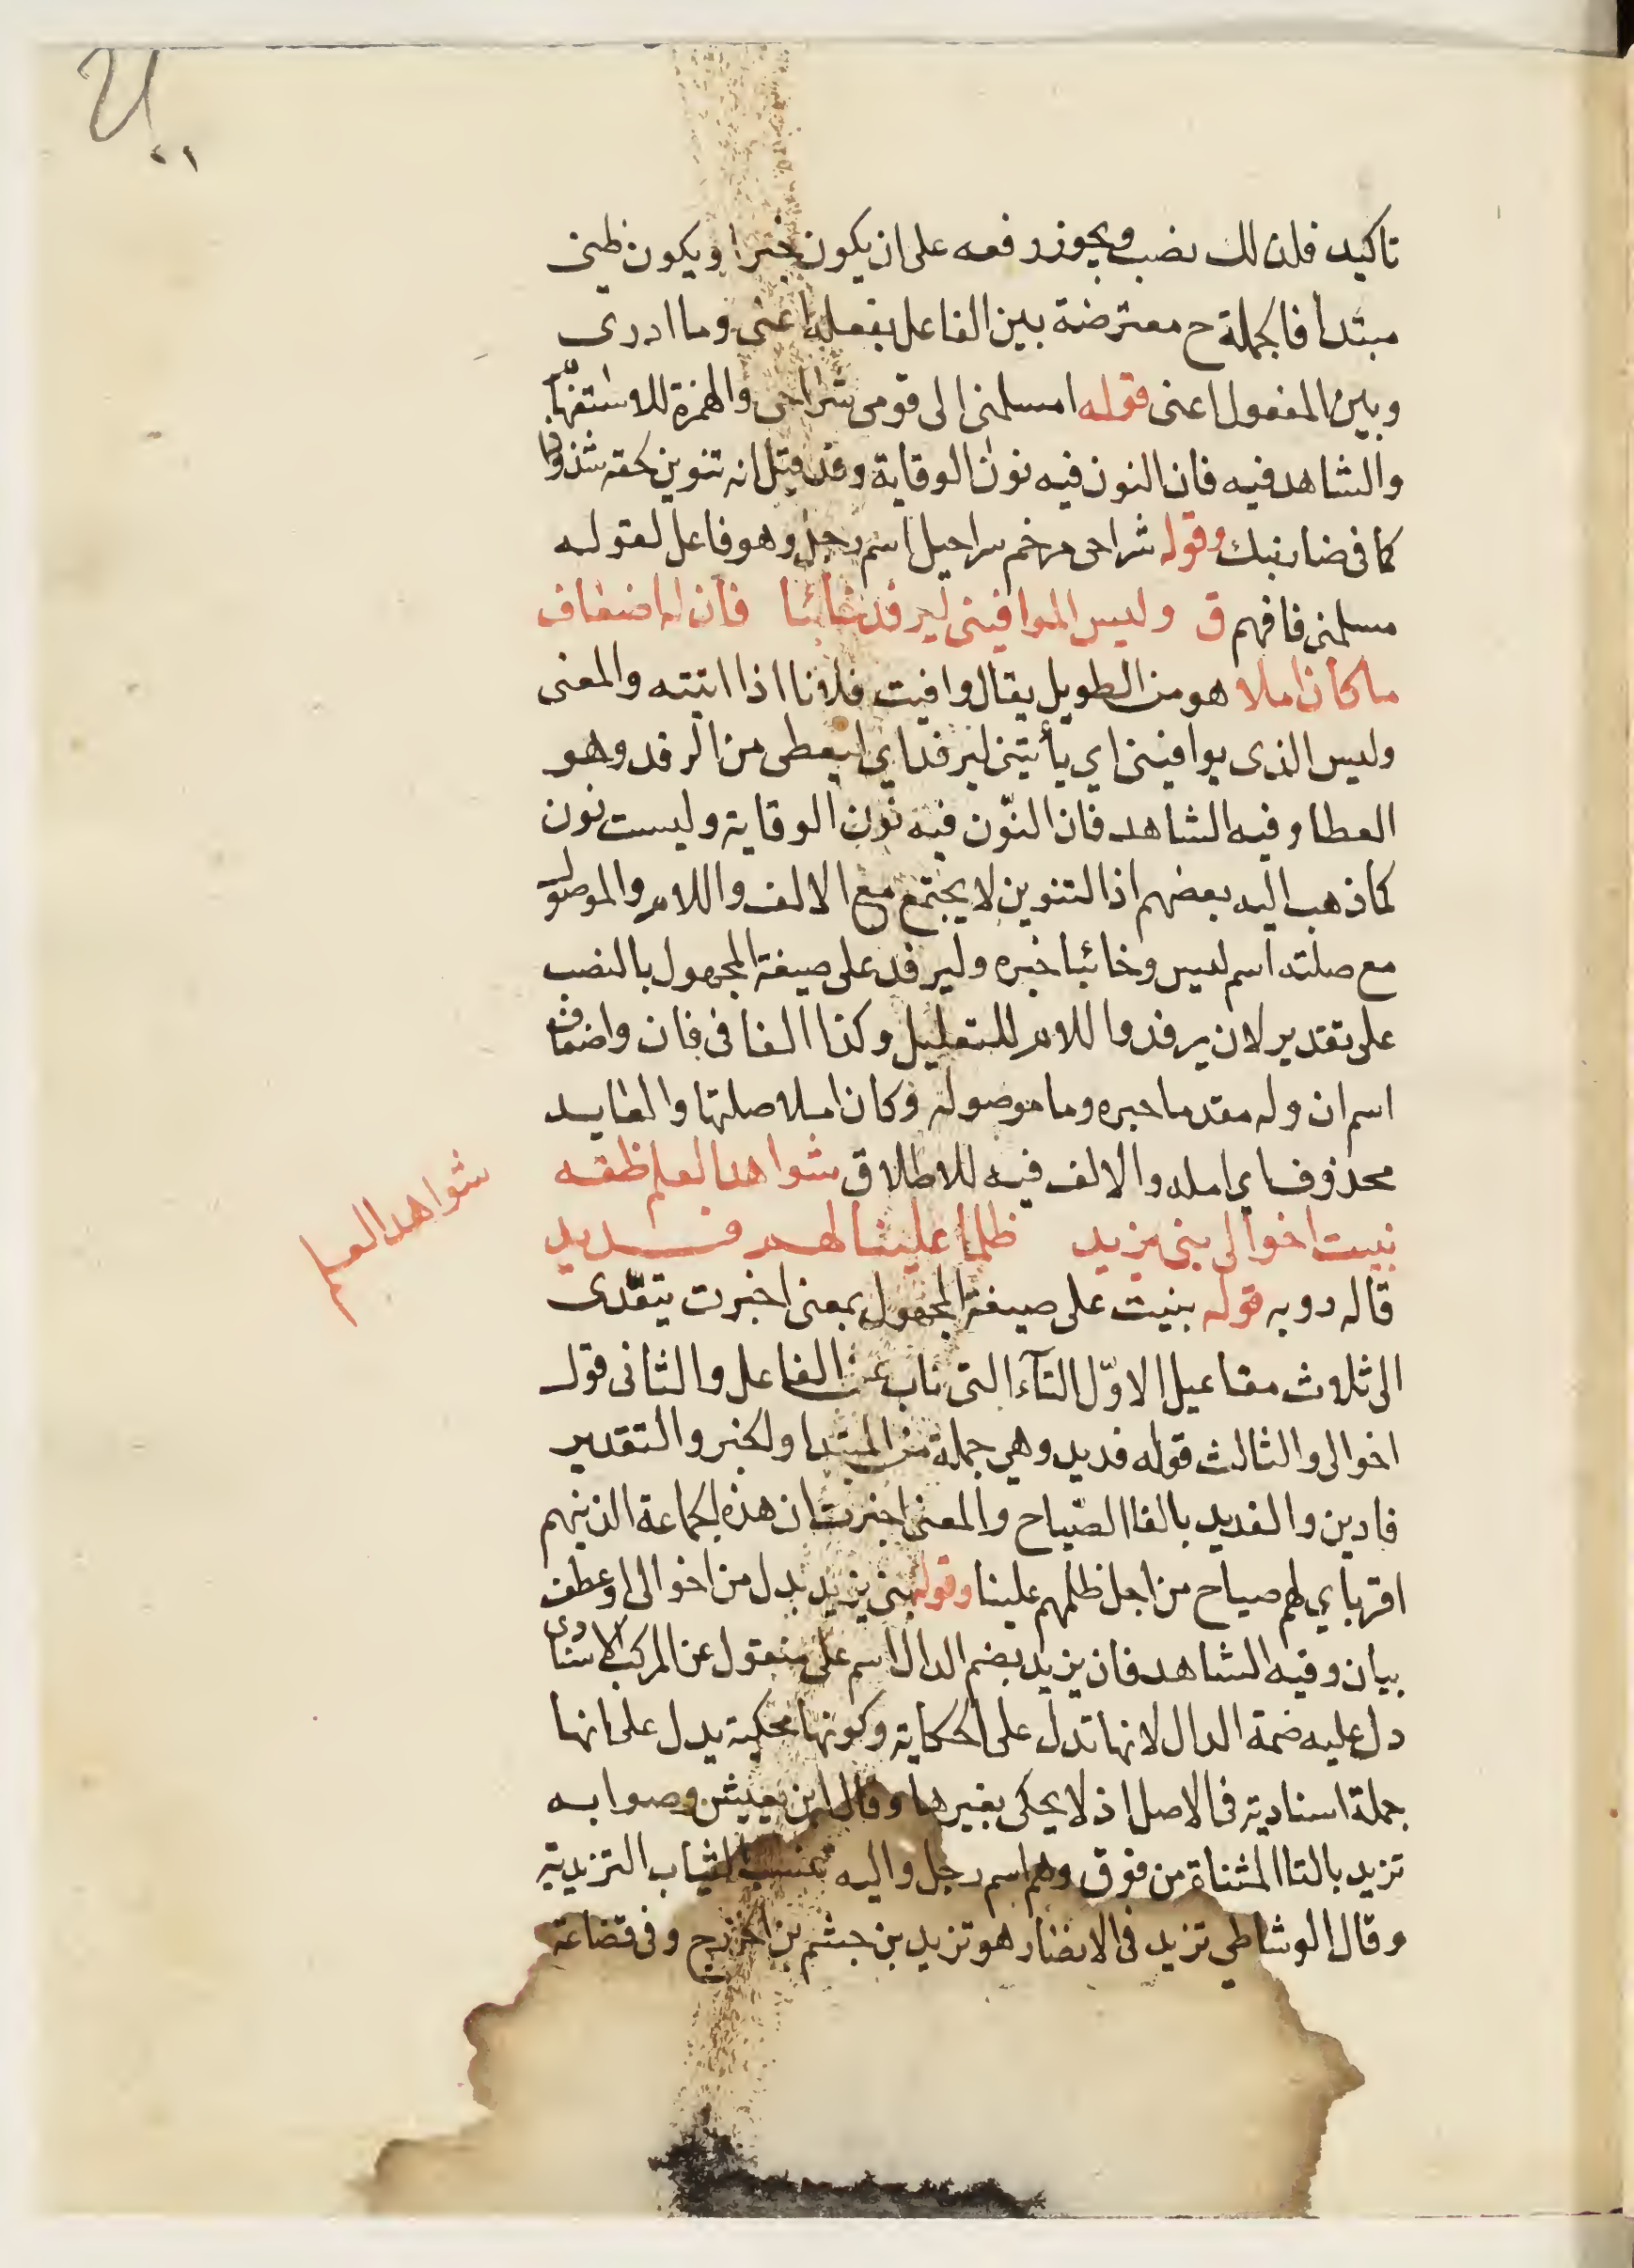 ٢١
تاكيد فلذلك نصب ويجوز رفعه على ان يكون خبرا ويكون ظني
مبتدا فالجملة ح معترضة بين الفاعل بفعله اعني وما ادرى
وبين المفعول اعنى قوله امسلمنى الى قومى شراحى والهمزة للاستفهام
والشاهد فيه فان النون فيه نون الوقاية وقد قيل انه تنوين لحقه شذوذا
كما فى ضاربنك وقوله شراحى مرخم شراحيل اسم رجل وهو فاعل لقوله
مسلمنى فافهم ق وليس الموافينى ليرفد خائبا فان له اضعاف
ما كان املا هو من الطويل يقال وافيت فلانا اذا اتيته والمعنى
وليس الذى يوافينى اي يأتينى ليرفد اي ليعطى من الرفد وهو
العطا وفيه الشاهد فان النّون فيه نون الوقاية وليست نون
كما ذهب اليه بعضهم اذ التنوين لا يجتمع مع الالف واللام والموصول
مع صلته اسم ليس وخائبا خبره وليرفد على صيغة المجهول بالنصب
على تقدير لان يرفد واللام للتعليل وكذا الفا فى فان واضعاف
اسم ان وله مقدما خبره وما موصوله وكان املا صلتها والعايد
محذوف اي امله والالف فيه للاطلاق شواهد العلم ظقه
نبيت اخوالى بنى يزيد ظلما علينا لهم فديد
شواهد العلم
قاله روبه قوله نبيت على صيغة المجهول بمعنى اخبرت يتعّدى
الى ثلاث مفاعيل الاوّل التآء التى ناب عن الفاعل والثانى قوله
اخوالى والثالث قوله فديد وهي جملة من المبتدا والخبر والتقدير
فادين والفديد بالفا الصّياح والمعنى اخبرت ان هذه الجماعة الذينهم
اقربا ي لهم صياح من اجل ظلمهم علينا وقوله بنى يزيد بدل من اخوالى او عطف
بيان وفيه الشاهد فان يزيد بضم الدال اسم علم منقول عن المركب الاسنادى
دل عليه ضمة الدال لانها تدل على الحكاية وكونها محكية يدل على انها
جملة اسنادية فى الاصل اذ لا يحكى بغيرها وقال ابن يعيش وصوابه
تزيد بالتا المثناة من فوق وهم اسم رجل واليه تنسب الثياب التزيدية
وقال الوشاطي تزيد فى الانصار هو تزيد بن جشم بن الخزرج وفى قضاعة